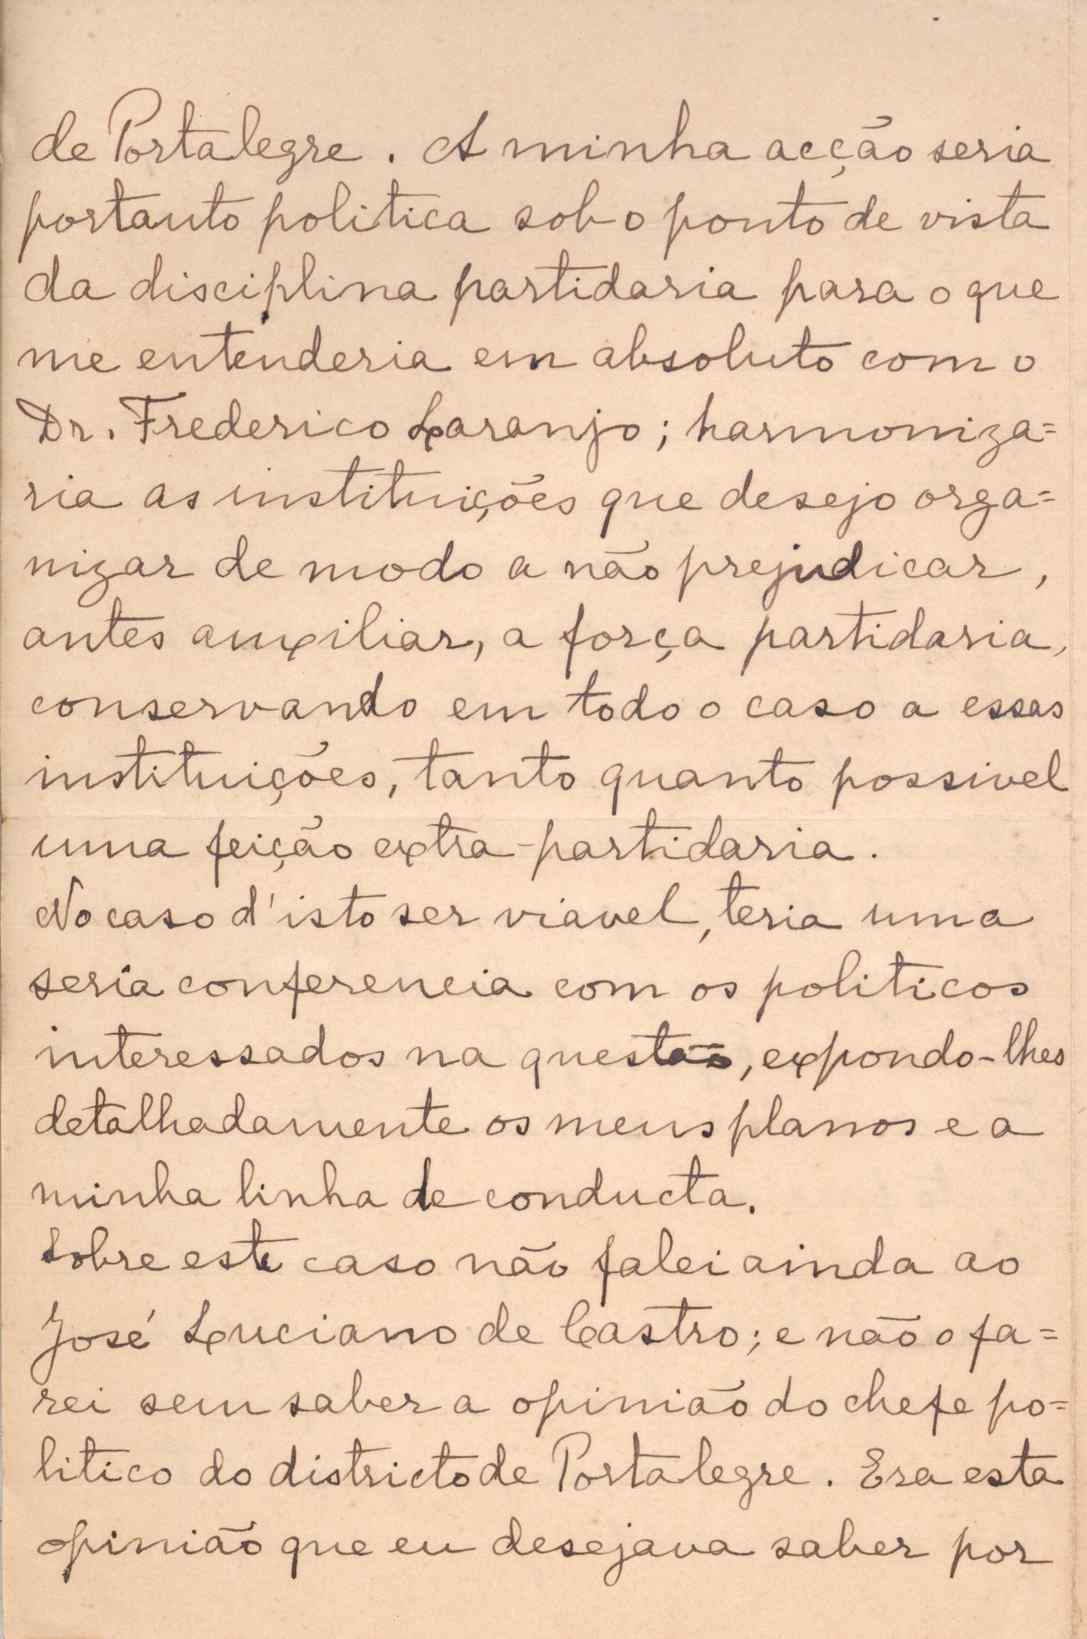 de Portalegre. A minha acção seria
portanto politica sob o ponto de vista
da disciplina partidaria para o que
me entenderia em absoluto com o
Dr. Frederico Laranjo; harmoniza=
ria as instituições que desejo orga=
nizar de modo a não prejudicar,
antes auxiliar, a força partidaria,
conservando em todo o caso a essas
instituições, tanto quanto possivel
uma feição extra-partidaria.
No caso d'isto ser viavel, teria uma
seria conferencia com os politicos
interessados na questão, expondo-lhes
detalhadamente os meus planos e a
minha linha de conducta.
Sobre este caso não falei ainda ao
José Luciano de Castro; e não o fa=
rei sem saber a opinião do chefe po=
litico do districto de Portalegre. Era esta
opinião que eu desejava saber por